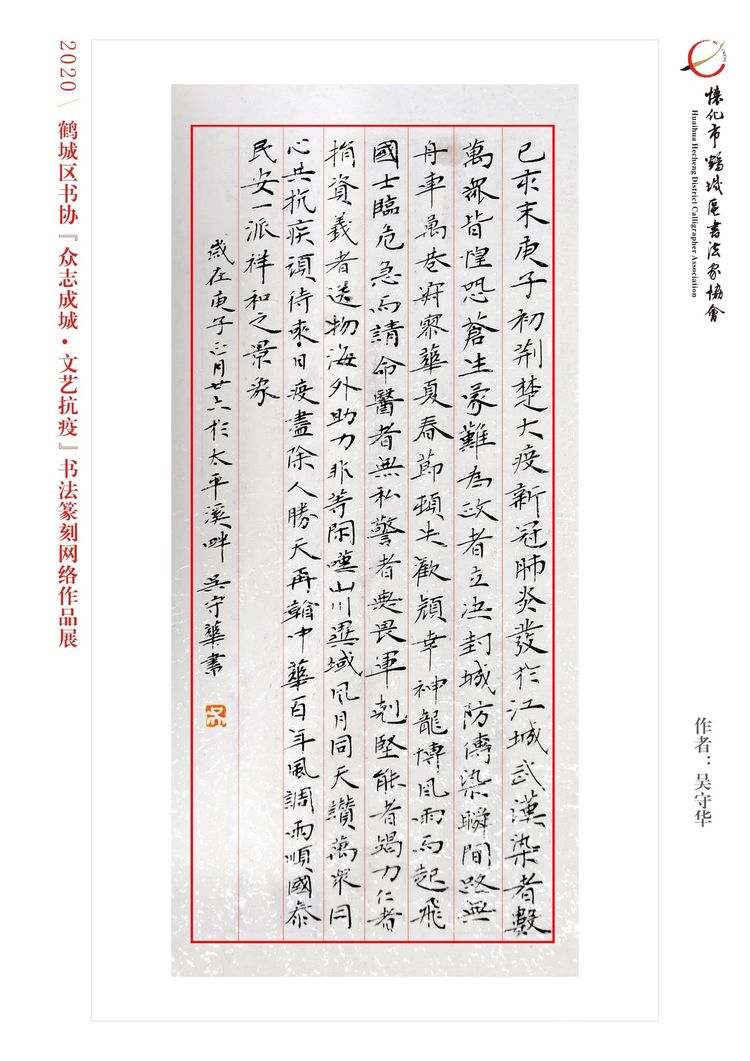 2020 / 鹤城区书协『众志成城·文艺抗疫』书法篆刻网络作品展
懷化市鶴城區書法家協會
Huaihua Hecheng District Calligrapher Association
己亥末庚子初荆楚大疫新冠肺炎發於江城武漢染者數
萬眾皆惶恐蒼生蒙難為政者立決封城防傳染瞬間路無
舟車萬巷寂寥華夏春節頓失歡顏幸神龍搏風雨而起飛
國士臨危急而請命醫者無私警者無畏軍剋堅能者竭力仁者
捐資義者送物海外助力非等閑嘆山川異域風月同天讚萬眾同
心共抗疾須待來日疫盡除人勝天再翰中華百年風調雨順國泰
民安一派祥和之景象
歲在庚子正月廿六於太平溪畔 吴守華書
作者：吴守华